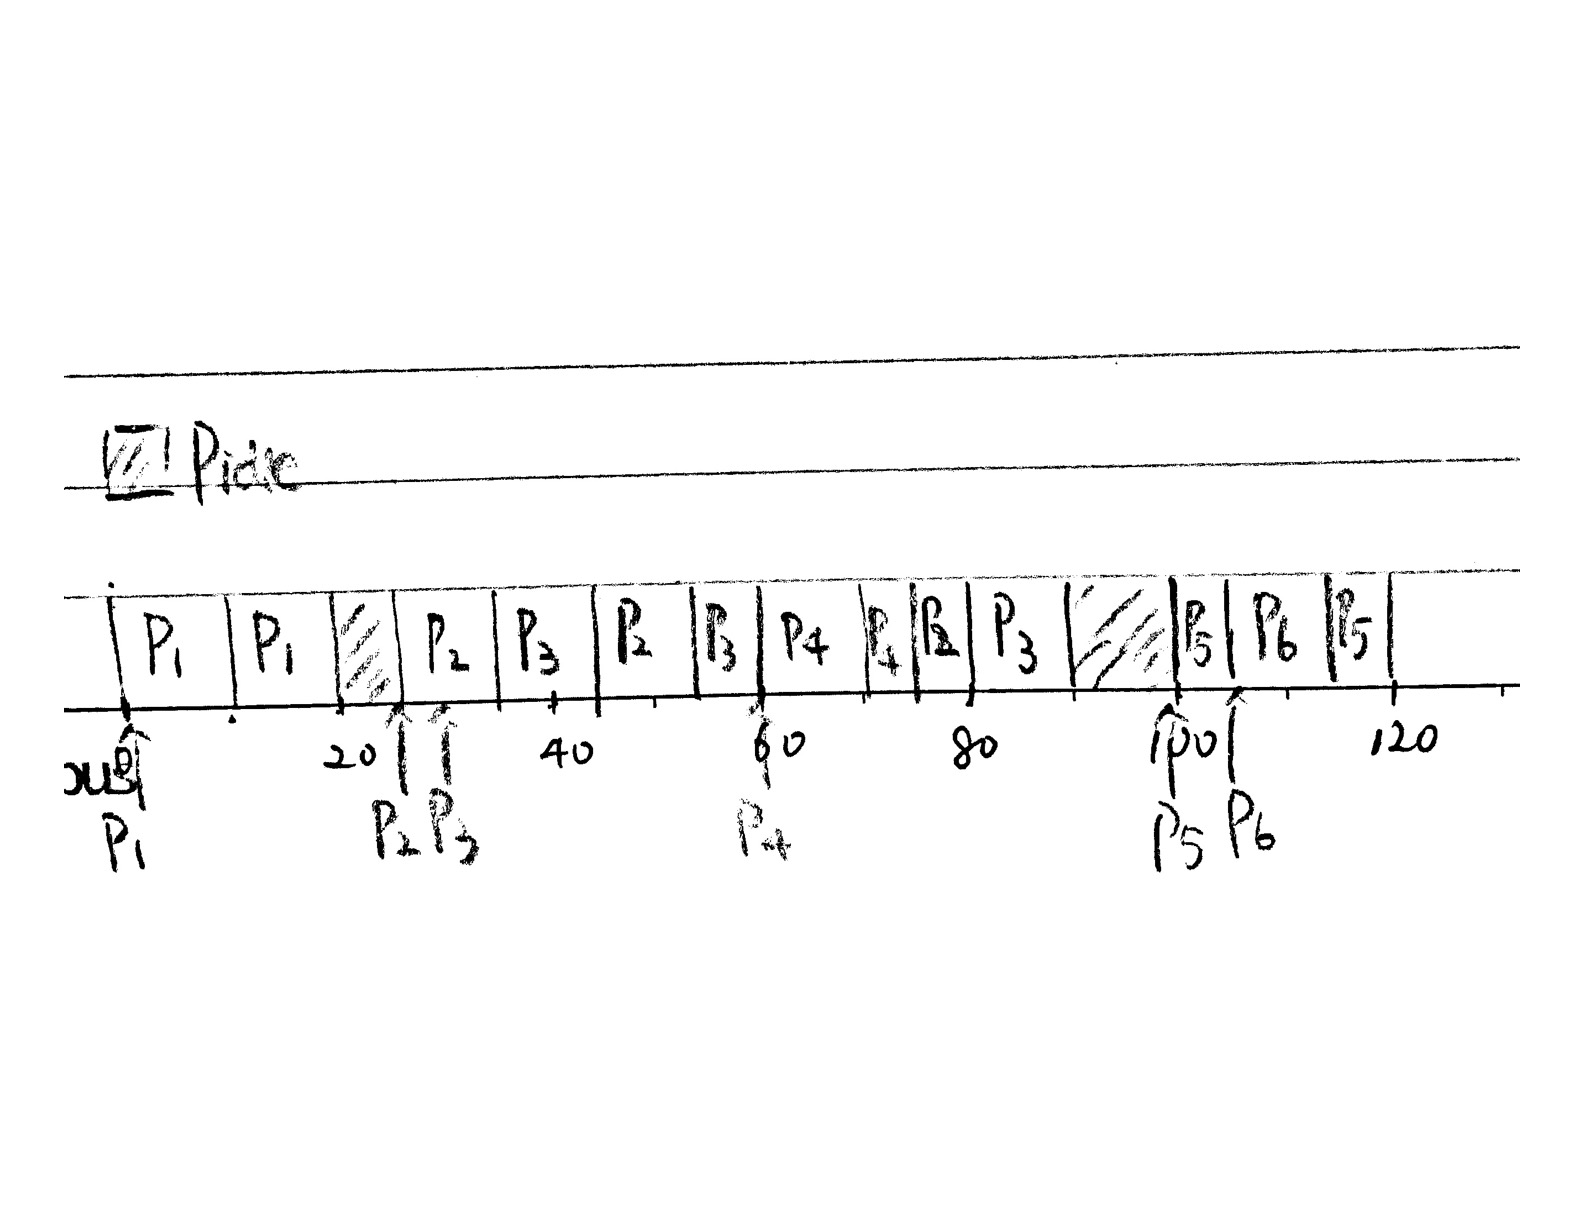 Pidle
P1 P1 P2 P3 P2 P3 P4 P4 P2 P3 P5 P6 P5
0 20 40 60 80 100 120
P1 P2 P3 P4 P5 P6